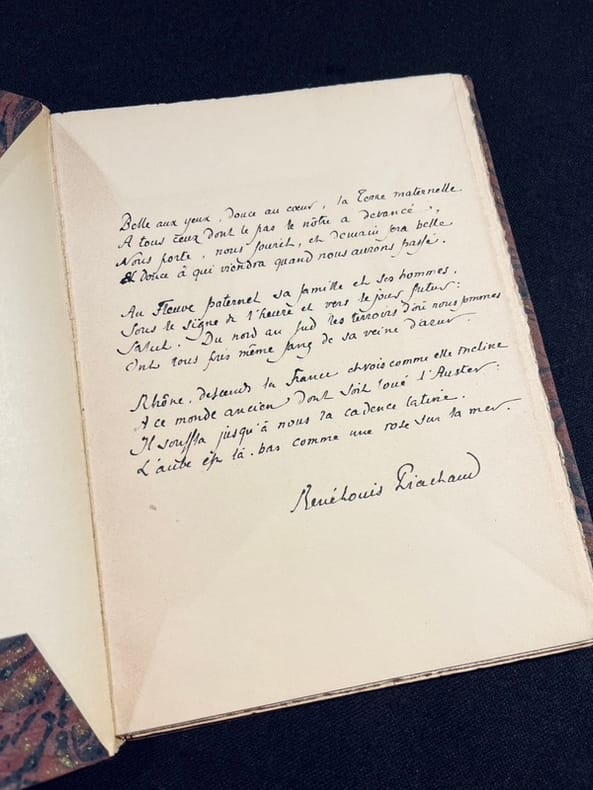 Belle aux yeux, douce au cœur, la Terre maternelle
A tous ceux dont le pas le nôtre a devancé,
Nous porte, nous sourit, et demain sera belle
Et douce à qui viendra quand nous aurons passé.
Au Fleuve paternel sa famille et ses hommes,
Sous le signe de l'heure et vers le jour futur:
Salut. Du nord au sud les terroirs d'où nous sommes
Ont tous pris même sang de sa veine d'azur.
Rhône, descends la France et vois comme elle incline
A ce monde ancien dont soit loué l'Auster:
Il souffla jusqu'à nous la cadence latine.
L'aube est là-bas comme une rose sur la mer.
RenéLouis Piachaud